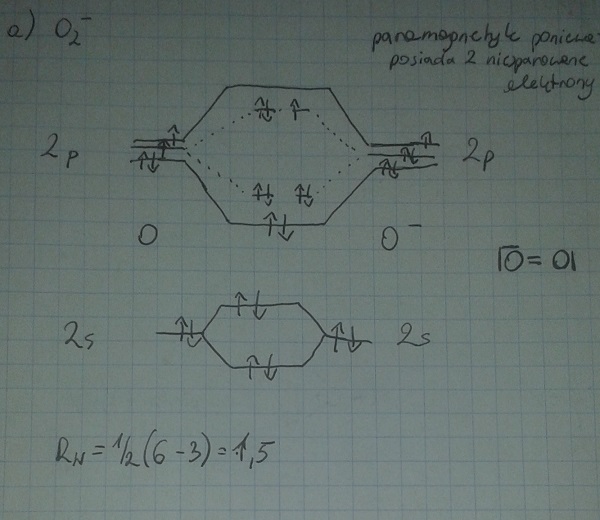 a) O₂⁻
paramagnetyk ponieważ
posiada 2 niesparowane
elektrony
2p 2p
O O⁻
|O̅ = O|
2s 2s
R_N = 1/2 (6 - 3) = 1,5